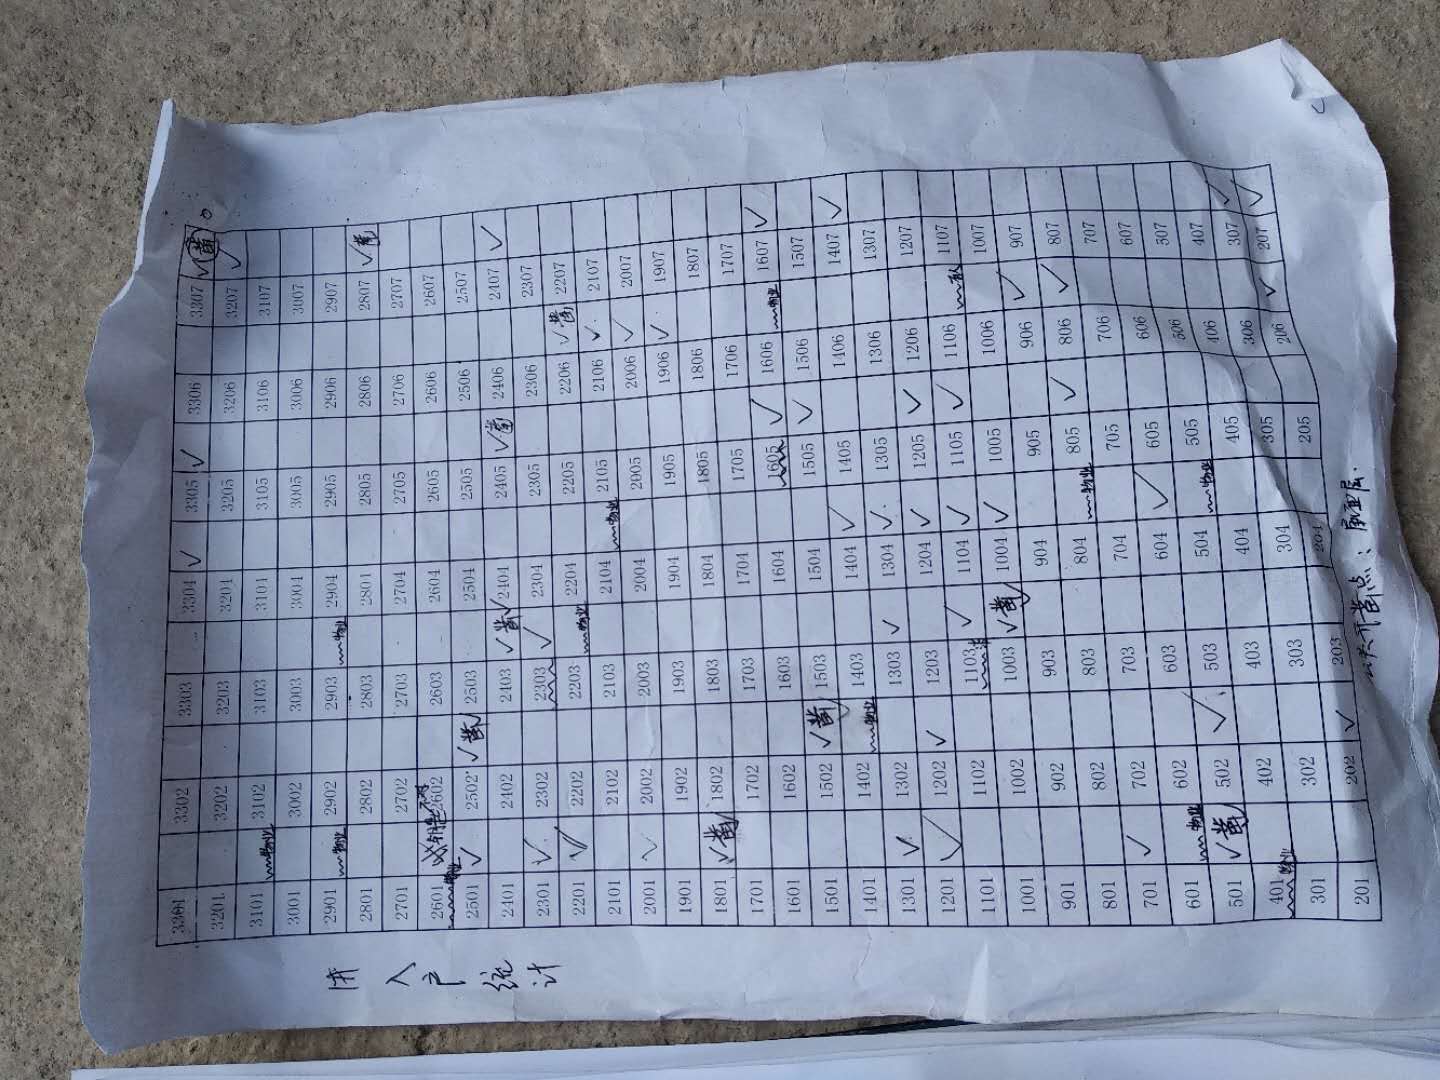 开入户统计
3301 3302 3303 3304 ✓ 3305 ✓ 3306 3307 ✓
3201 3202 3203 3204 3205 3206 3207 ✓
3101 物业 3102 3103 3104 3105 3106 3107
3001 3002 3003 3004 3005 3006 3007
2901 物业 2902 2903 物业 2904 2905 2906 2907
2801 2802 2803 2804 2805 2806 2807 ✓
2701 2702 2703 2704 2705 2706 2707
2601 物业 2602 2603 2604 2605 2606 2607
2501 ✓ 2502 ✓ 2503 2504 2505 2506 2507
2401 2402 2403 ✓ 2404 2405 ✓ 2406 2407 ✓
2301 ✓ 2302 2303 ✓ 2304 2305 2306 2307
2201 ✓ 2202 2203 物业 2204 2205 2206 ✓ 2207
2101 2102 2103 2104 物业 2105 2106 ✓ 2107
2001 ✓ 2002 2003 2004 2005 2006 ✓ 2007
1901 1902 1903 1904 1905 1906 ✓ 1907
1801 ✓ 1802 1803 1804 1805 1806 1807
1701 1702 1703 1704 1705 1706 1707
1601 1602 1603 1604 1605 ✓ 1606 物业 1607 ✓
1501 1502 ✓ 1503 1504 1505 ✓ 1506 1507
1401 1402 物业 1403 1404 ✓ 1405 1406 1407 ✓
1301 ✓ 1302 1303 ✓ 1304 ✓ 1305 1306 1307
1201 ✓ 1202 ✓ 1203 1204 ✓ 1205 ✓ 1206 1207
1101 1102 1103 ✓ 1104 ✓ 1105 ✓ 1106 1107
1001 1002 1003 ✓ 1004 ✓ 1005 1006 1007
901 902 903 904 905 906 ✓ 907
801 802 803 804 物业 805 ✓ 806 ✓ 807
701 ✓ 702 703 704 705 706 707
601 物业 602 603 604 ✓ 605 606 607
501 ✓ 502 ✓ 503 504 物业 505 506 507
401 物业 402 403 404 405 406 407
301 302 303 304 305 306 307 ✓
201 202 ✓ 203 204 205 206 ✓ 207 ✓